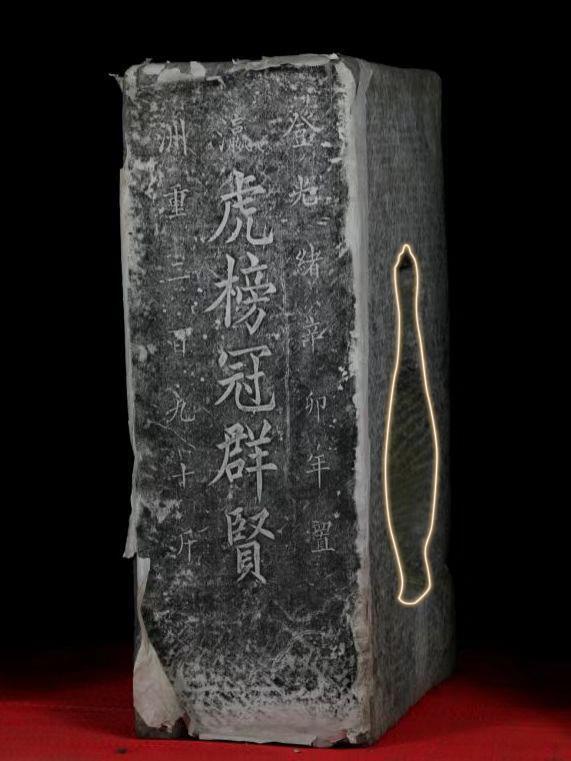 登瀛洲
光緒辛卯年置
虎榜冠群賢
重三百九十斤